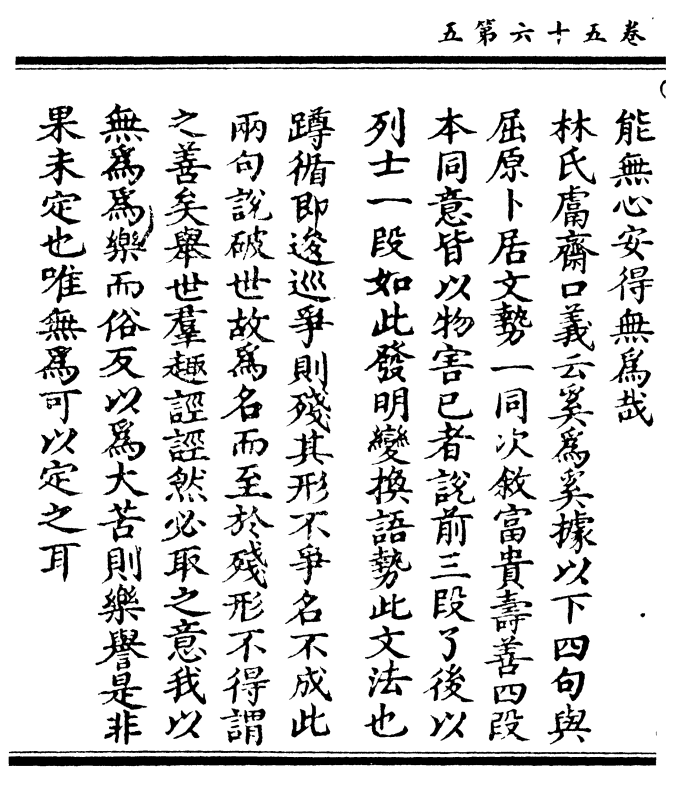 卷五十六第五
能無心安得無爲哉
林氏鬳齋口義云奚爲奚據以下四句與
屈原卜居文勢一同次敘富貴壽善四段
本同意皆以物害已者說前三段了後以
列士一段如此發明變換語勢此文法也
蹲循即逡巡爭則殘其形不爭名不成此
兩句說破世故爲名而至於殘形不得謂
之善矣舉世羣趣誙誙然必取之意我以
無爲爲樂而俗反以爲大苦則樂譽是非
果未定也唯無爲可以定之耳